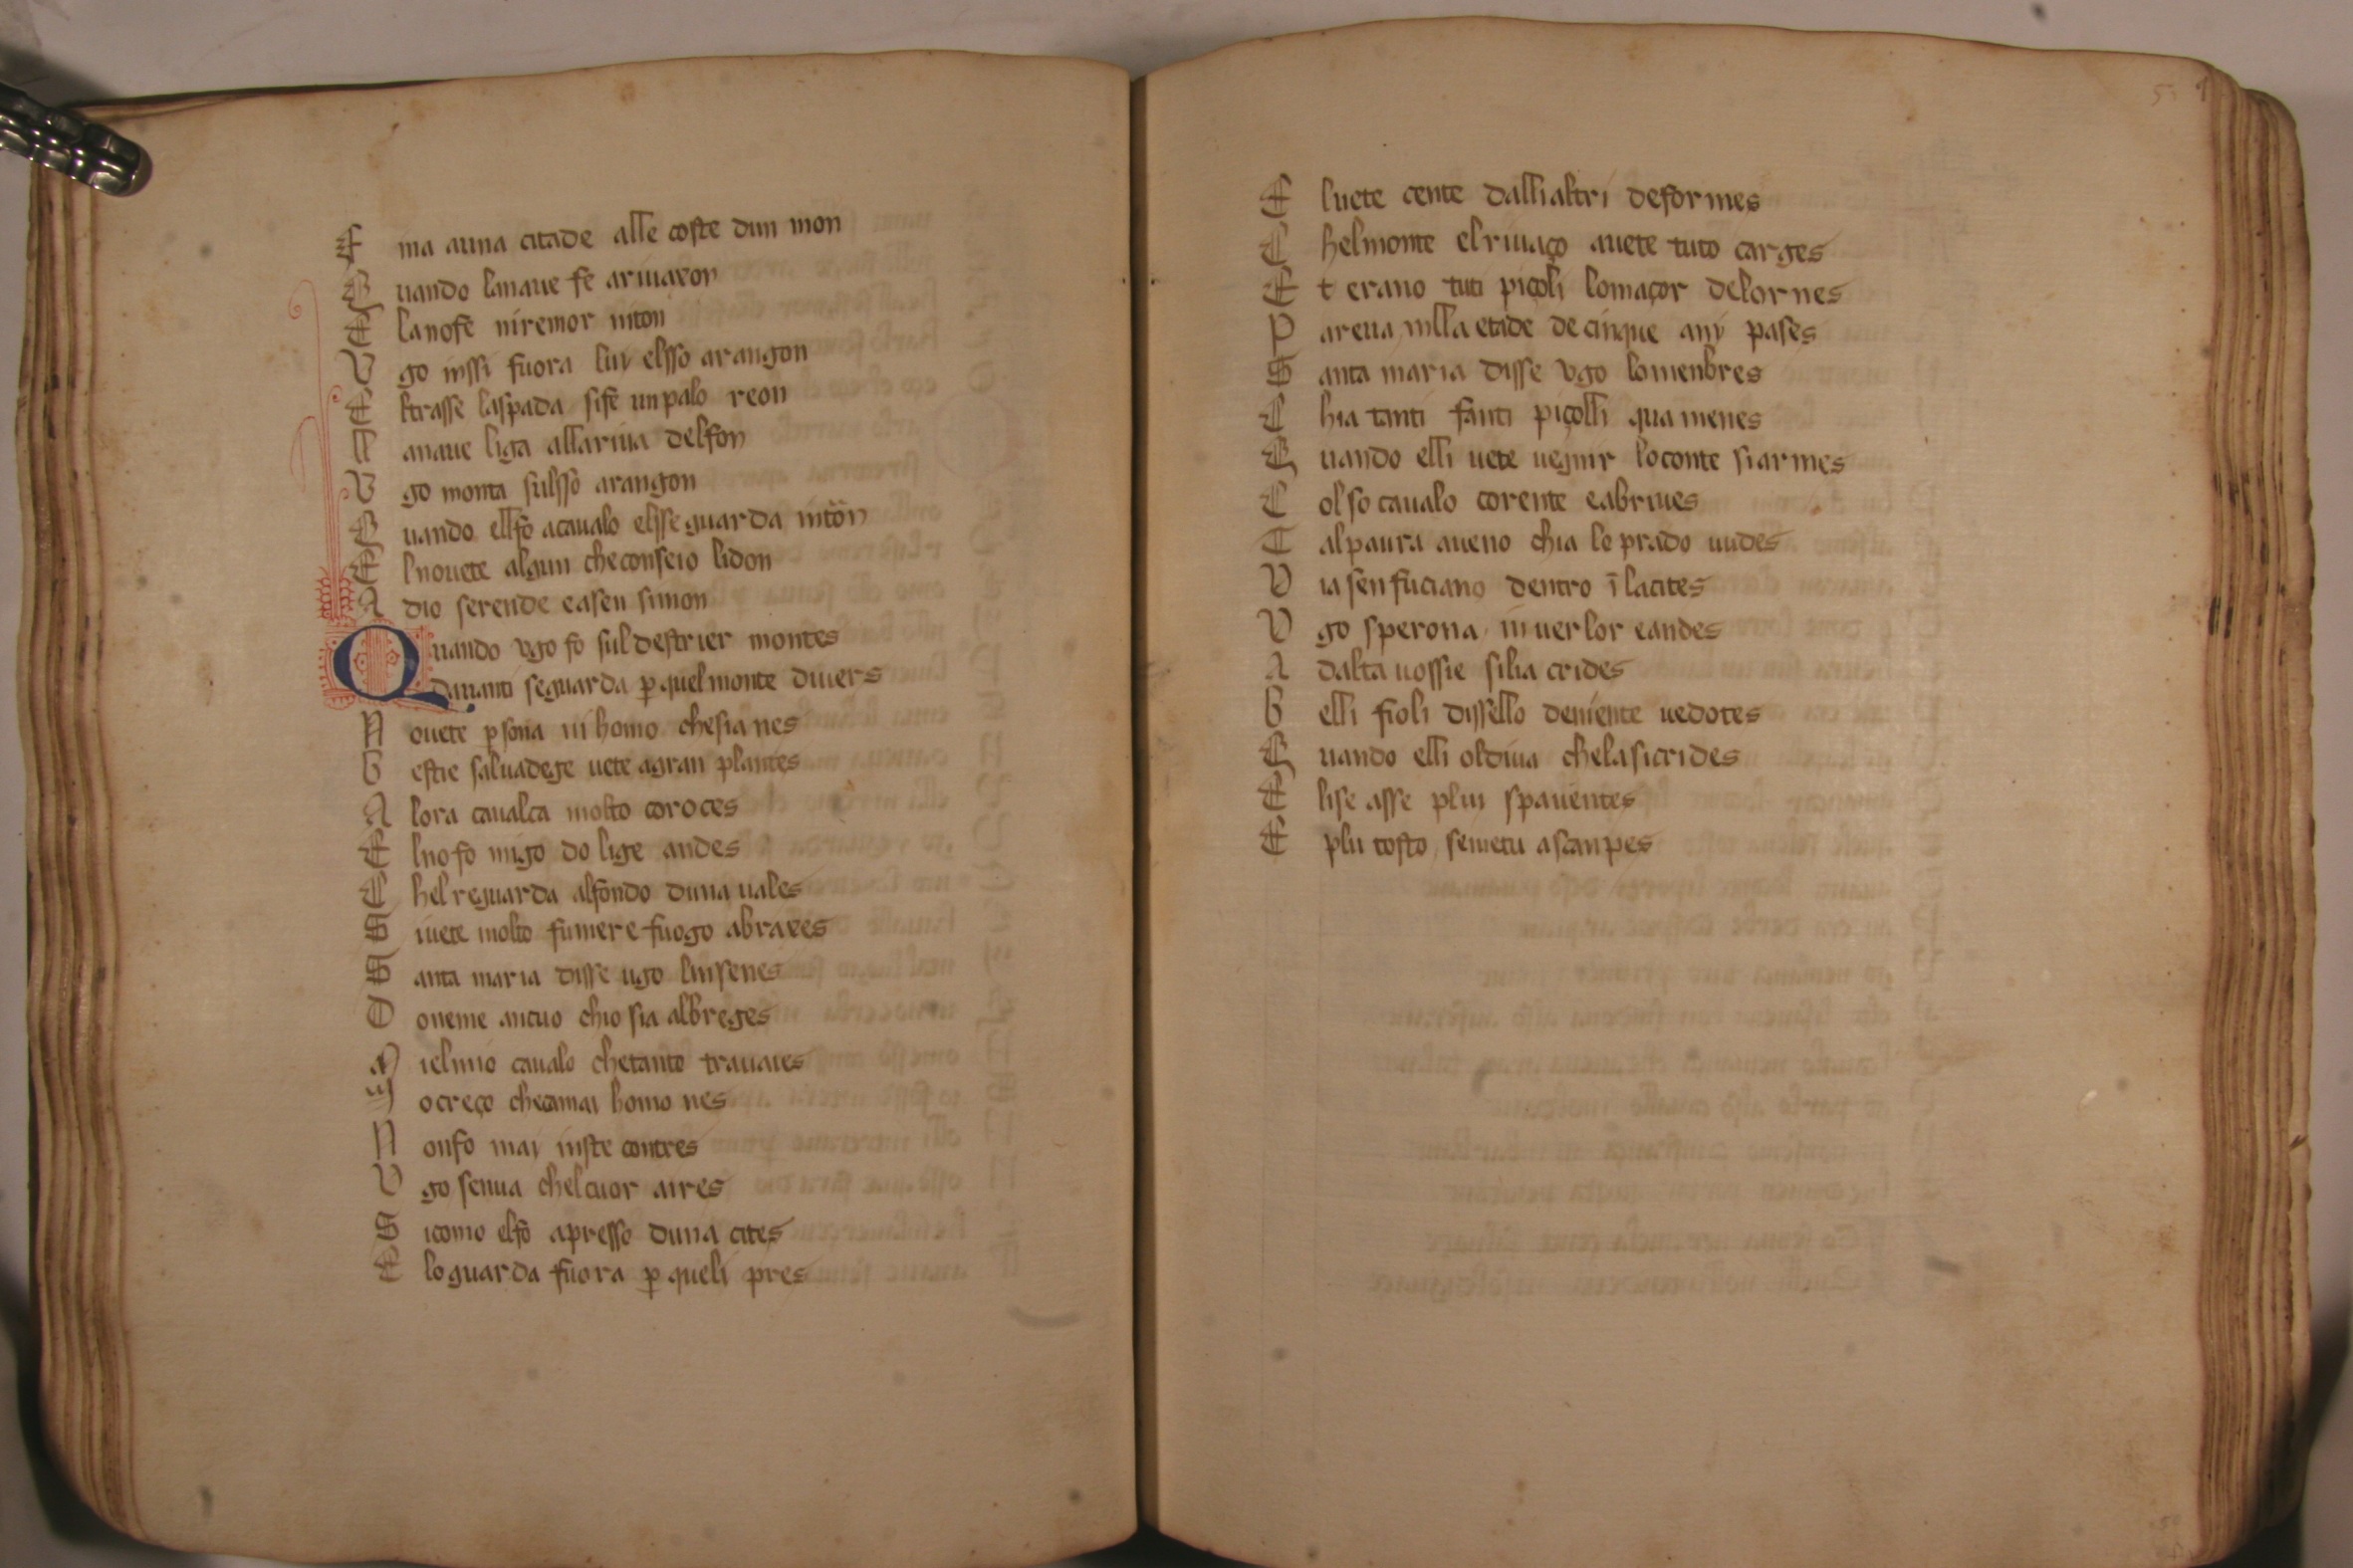 E ina auna citade alle coste dun mon
Q uando lanaue fe ariuaxon
E lanofe niremor niton
V go inssi fuora lui elsso arangon
E ltrasse laspada sife unpalo reon
L anaue liga allariua delfon
V go monta sulsso arangon
Q uando ellfo acaualo elsseguarda intorn
E lnouete algun checonseio lidon
A dio serende easen simon
Quando vgo fo sul destrier montes
Dauanti seguarda p quel monte diuers
N ouete psona ni homo chesia nes
B estie saluadege uete agran plantes
A lora caualca molto coroces
E lnofo migo do lige andes
C hel reguarda alfondo duna uales
S iuete molto fumere fuogo abraxes
S anta maria disse ugo luisenes
D oneme ancuo chio sia albreges
M ielmio caualo chetanto trauaies
M ocreço checamai homo nes
N onfo mai inste contres
V go senua chelcuor aires
S icomo elfo apresso duna cites
E loguarda fuora p queli pres
E luete cente dallialtri deformes
C helmonte elriuaço auete tuto carges
E t erano tuti piçoli lomaçor delor nes
P areua nilla etade de cinque ani pases
S anta maria disse vgo lomenbres
C hia tanti fanti piçolli qua menes
Q uando elli uete uegnir loconte siarmes
C olso caualo corente eabriues
T alpaura aueno chia lo prado uudes
V ia sen fuciano dentro ĩ lacites
V go sperona inuerlor eandes
A dalta uossie silia crides
B elli fioli dissello deniente uedotes
Q uando elli oldiua chelasicrides
E lise asse plui spauentes
E plu tosto semetu ascanpes
53